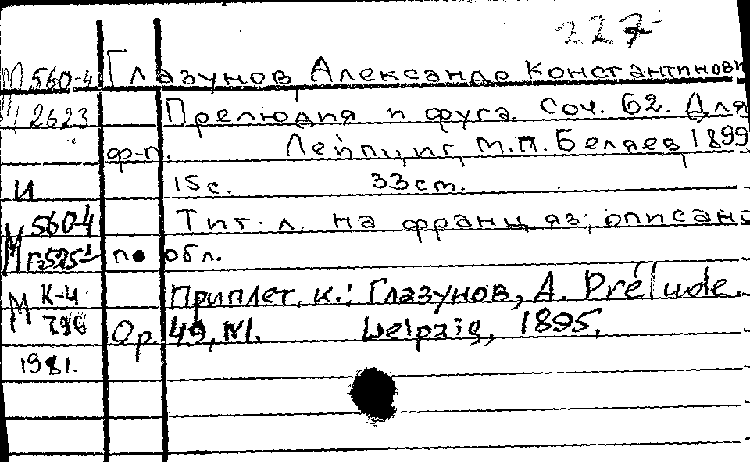 227
М 560-4 Глазунов, Александр Константинови
2623 Прелюдия и фуга. Соч. 62. Для
ф-п. Лейпциг, М.П. Беляев, 1899
И 15с. 33cm.
М 560-4 Тит. л. на франц. яз; описано
по обл.
М К-4 Приплет. к.: Глазунов, А. Prélude.
796 Op 49, N1. Leipzig, 1895.
1981.